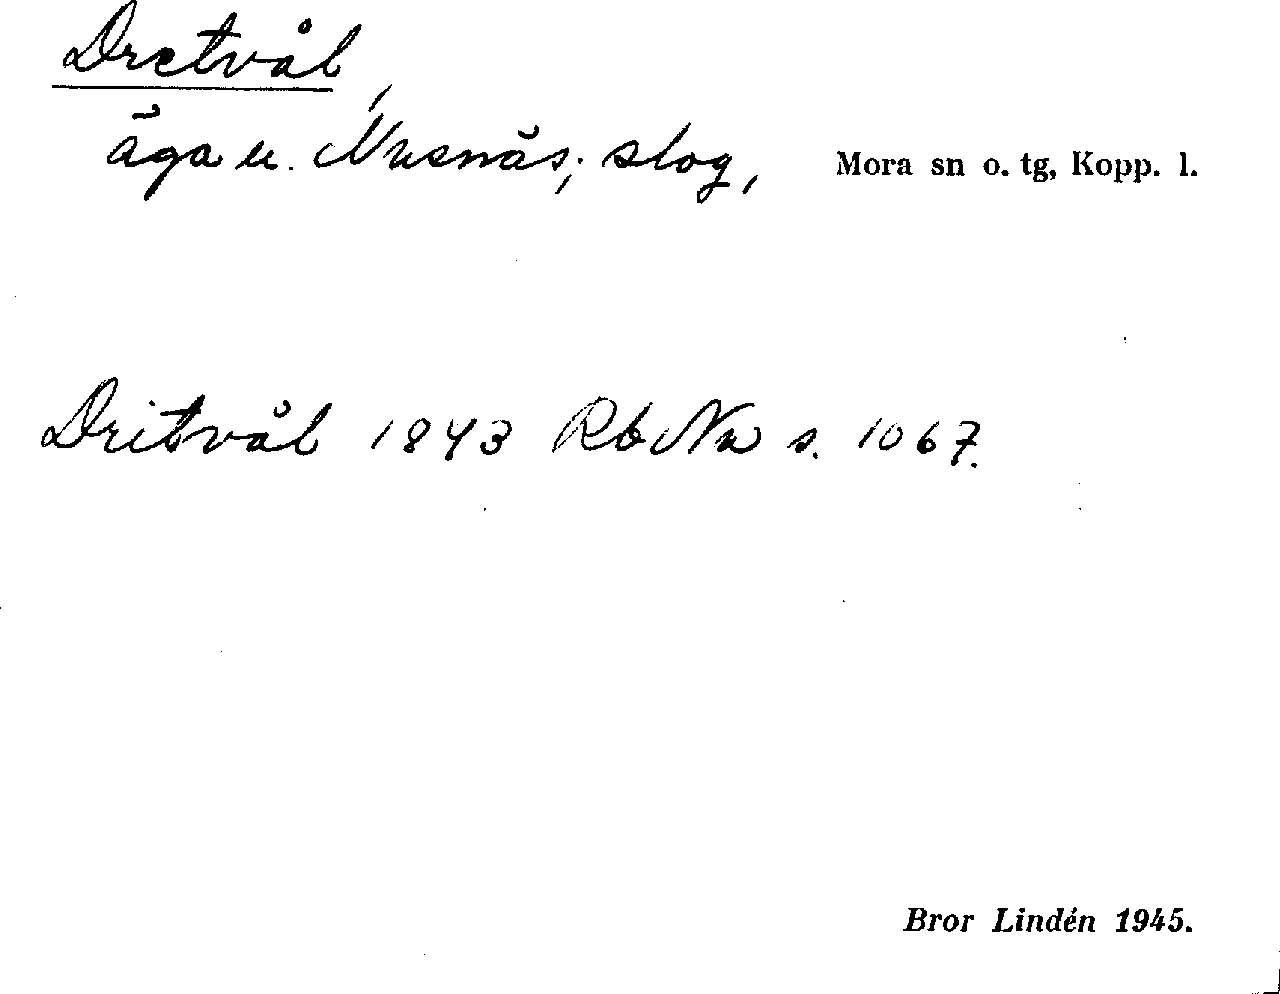 Dretvål,
äga u. Nusnäs; slog, Mora sn o. tg, Kopp. l.
Dritvål 1843 Rb Nu s. 1067.
Bror Lindén 1945.